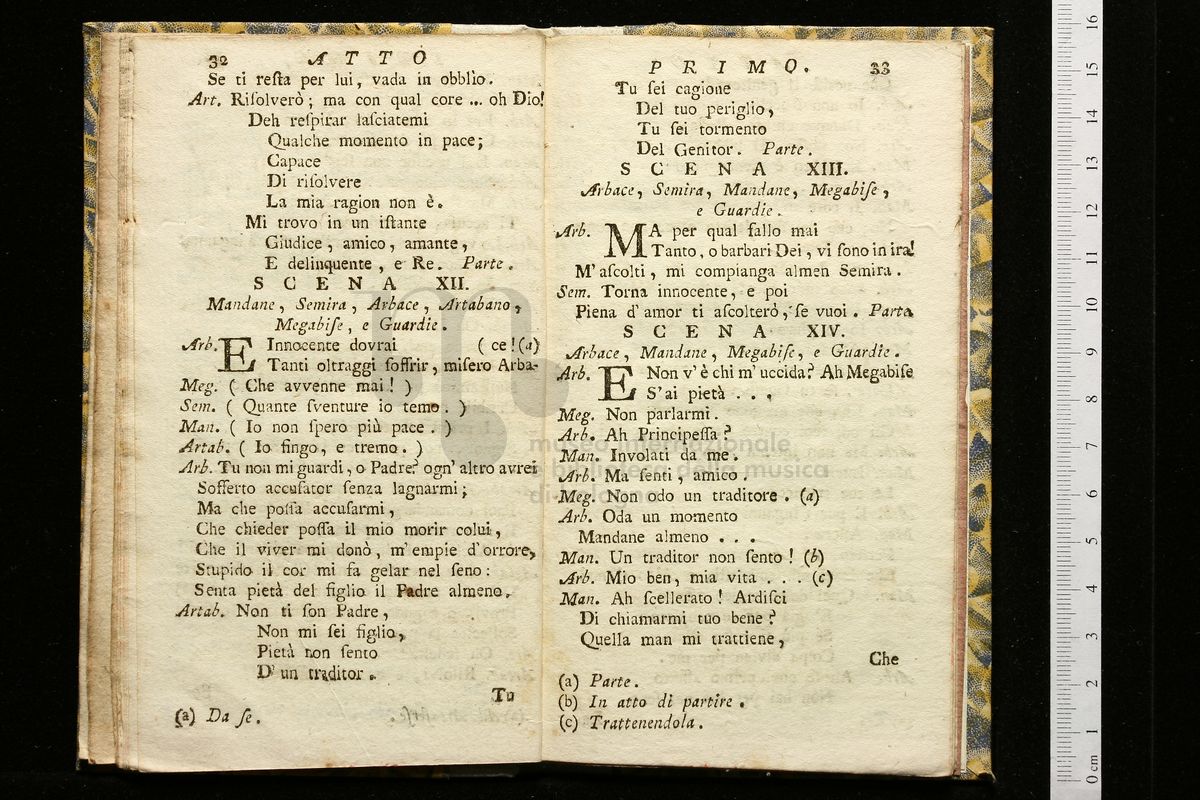 32 ATTO
Se ti reſta per lui, vada in obblìo.
Art. Riſolverò; ma con qual core ... oh Dio!
Deh reſpirar laſciatemi
Qualche momento in pace;
Capace
Di riſolvere
La mia ragion non è.
Mi trovo in un iſtante
Giudice, amico, amante,
E delinquente, e Re. Parte.
SCENA XII.
Mandane, Semira, Arbace, Artabano,
Megabiſe, e Guardie.
Arb. E Innocente dovrai ( ce! (a)
Tanti oltraggi ſoffrir, miſero Arba-
Meg. ( Che avvenne mai! )
Sem. ( Quante ſventure io temo. )
Man. ( Io non ſpero più pace. )
Artab. ( Io fingo, e tremo. )
Arb. Tu non mi guardi, o Padre? ogn' altro avrei
Sofferto accuſator ſenza lagnarmi;
Ma che poſſa accuſarmi,
Che chieder poſſa il mio morir colui,
Che il viver mi donò, m' empie d' orrore,
Stupido il cor mi fa gelar nel ſeno:
Senta pietà del figlio il Padre almeno.
Artab. Non ti ſon Padre,
Non mi ſei figlio,
Pietà non ſento
D' un traditor.
Tu
(a) Da ſe.
PRIMO. 33
Tu ſei cagione
Del tuo periglio,
Tu ſei tormento
Del Genitor. Parte.
SCENA XIII.
Arbace, Semira, Mandane, Megabiſe,
e Guardie.
Arb. MA per qual fallo mai
Tanto, o barbari Dei, vi ſono in ira!
M' aſcolti, mi compianga almen Semira.
Sem. Torna innocente, e poi
Piena d' amor ti aſcolterò, ſe vuoi. Parte
SCENA XIV.
Arbace, Mandane, Megabiſe, e Guardie.
Arb. E Non v' è chi m' uccida? Ah Megabiſe
S' ai pietà . . .
Meg. Non parlarmi.
Arb. Ah Principeſſa?
Man. Involati da me.
Arb. Ma ſenti, amico.
Meg. Non odo un traditore. (a)
Arb. Oda un momento
Mandane almeno . . .
Man. Un traditor non ſento! (b)
Arb. Mio ben, mia vita . . . (c)
Man. Ah ſcellerato! Ardiſci
Di chiamarmi tuo bene?
Quella man mi trattiene,
Che
(a) Parte.
(b) In atto di partire.
(c) Trattenendola.
museo internazionale
e biblioteca della musica
di bologna
0 cm 1 2 3 4 5 6 7 8 9 10 11 12 13 14 15 16